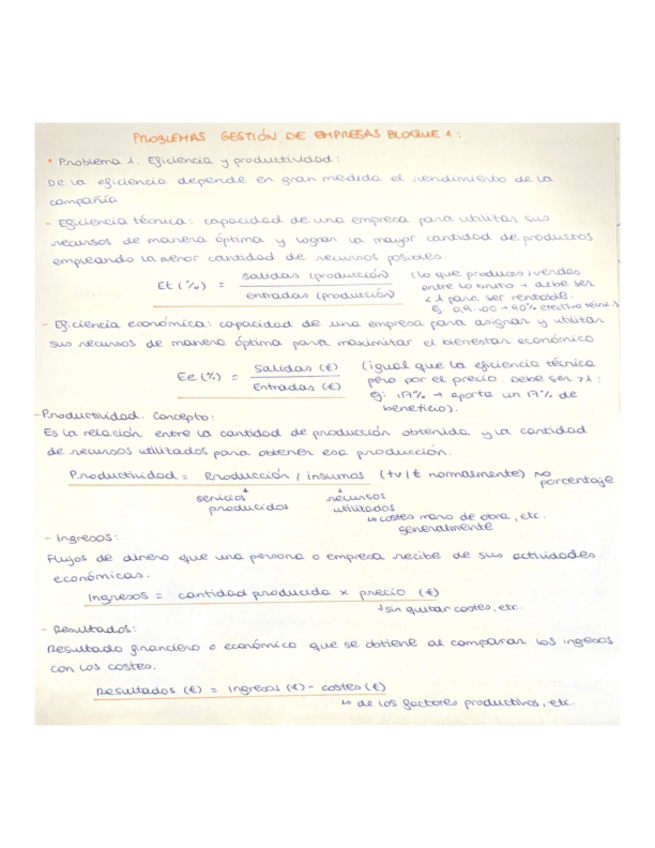 PROBLEMAS GESTIÓN DE EMPRESAS BLOQUE 1:
• Problema 1. Eficiencia y productividad:
De la eficiencia depende en gran medida el rendimiento de la
compañía
- Eficiencia técnica: capacidad de una empresa para utilizar sus
recursos de manera óptima y lograr la mayor cantidad de productos
empleando la menor cantidad de recursos posibles.
Et (%) = salidas (producción) / entradas (producción)
(lo que produces / vendes
entre lo bruto → debe ser
< 1 para ser rentable.
Ej: 0,9·100 → 90% efectivo
- Eficiencia económica: capacidad de una empresa para asignar y utilizar
sus recursos de manera óptima para maximizar el bienestar económico
Ee (%) = Salidas (€) / Entradas (€)
(igual que la eficiencia técnica
pero por el precio. Debe ser >1:
ej: 117% → aporta un 17% de
beneficio).
- Productividad. Concepto:
Es la relación entre la cantidad de producción obtenida y la cantidad
de recursos utilizados para obtener esa producción.
Productividad = Producción / insumos (tv/€ normalmente) no
porcentaje
servicios
producidos
recursos
utilizados
↳ costes mano de obra, etc.
generalmente
- Ingresos:
Flujos de dinero que una persona o empresa recibe de sus actividades
económicas.
Ingresos = cantidad producida x precio (€)
↓ sin quitar costes, etc.
- Resultados:
Resultado financiero o económico que se obtiene al comparar los ingresos
con los costes.
Resultados (€) = Ingresos (€) - costes (€)
↳ de los factores productivos, etc.